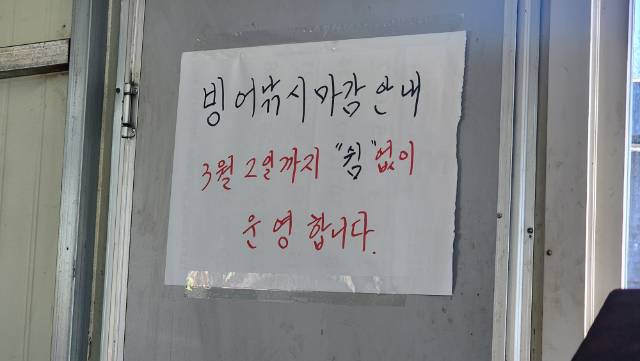 빙어낚시마감안내
3월 2일까지 "쉼"없이
운영합니다.